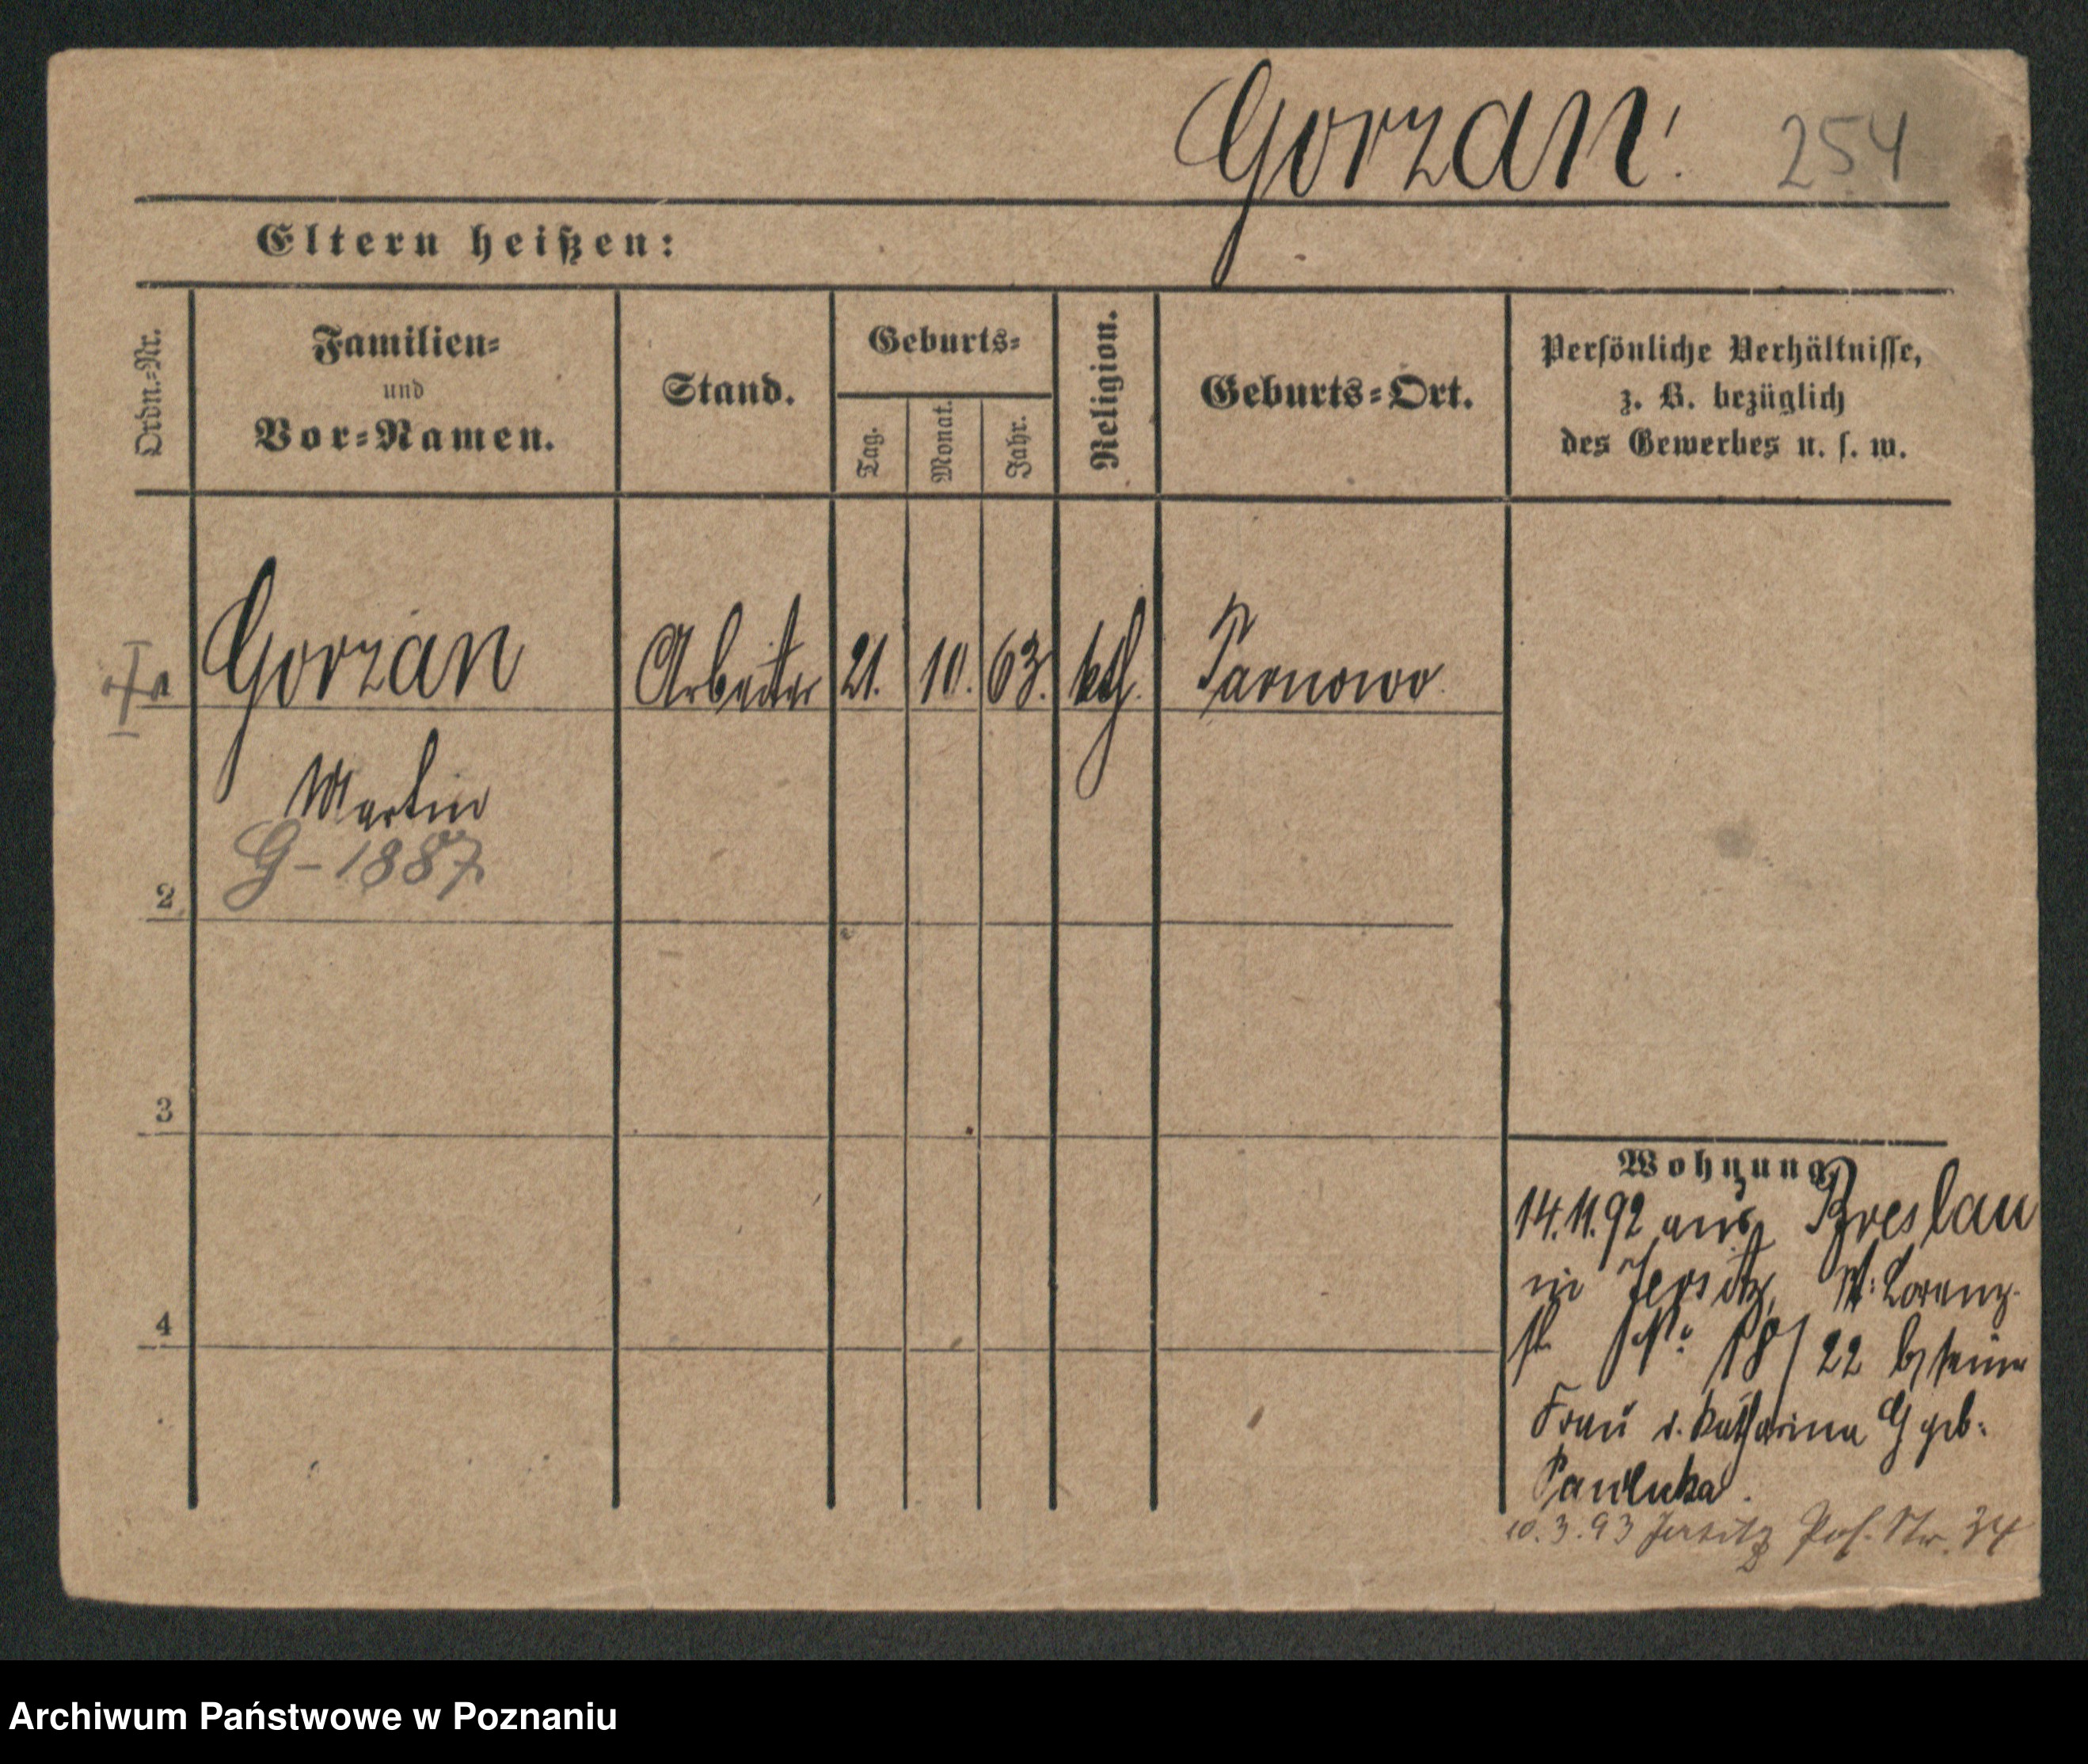 Gorzan. 254
Eltern heißen:
Ordn.-Nr.
Familien-
und
Vor-Namen.
Stand.
Geburts-
Tag.
Monat.
Jahr.
Religion.
Geburts-Ort.
Persönliche Verhältnisse,
z. B. bezüglich
des Gewerbes u. s. w.
Gorzan Arbeiter 21. 10. 63. kth. Parnowo
Martin
G-1887
2
3
4
Wohnung
14.11.92 aus Breslau
in Jersitz, St: Lorenz-
str No 18/22 b/ seiner
Frau Katharina G geb:
10.3.93 Jersitz Pos. Str. 34
Archiwum Państwowe w Poznaniu